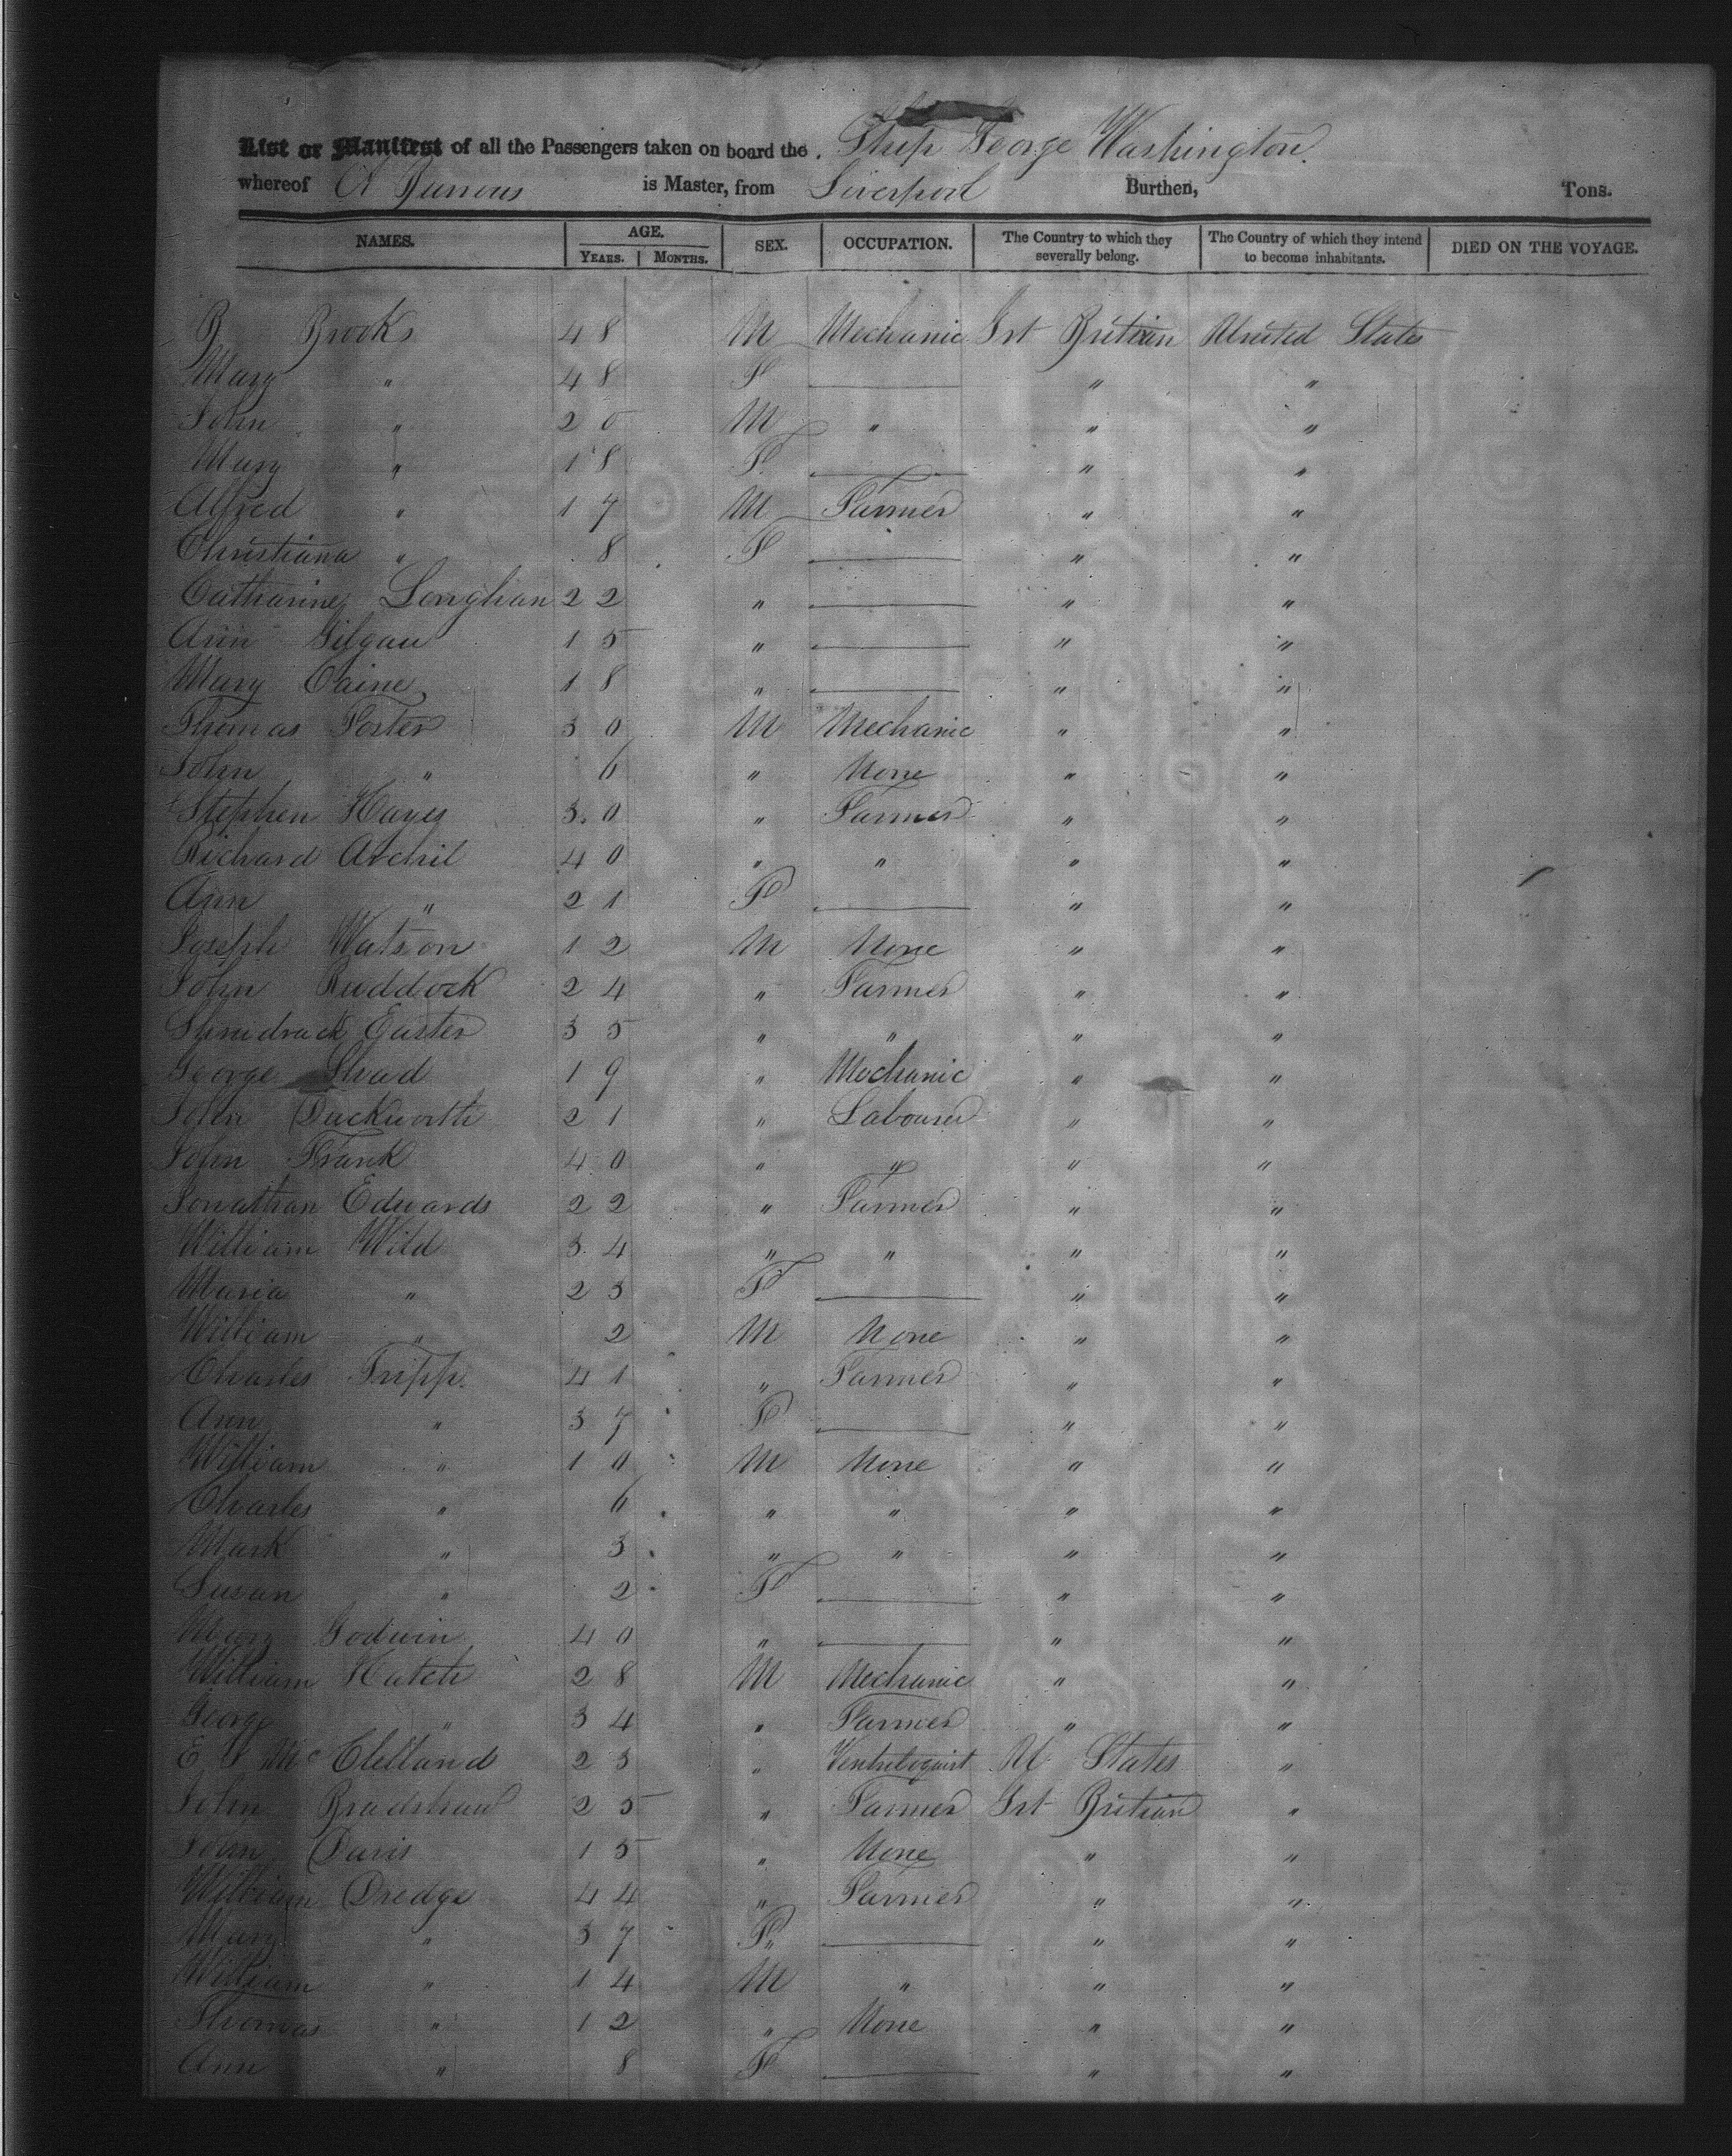 List or Manifest of all the Passengers taken on board the Ship George Washington.
whereof A Burrows is Master, from Liverpool Burthen, Tons.
NAMES. AGE. YEARS. MONTHS. SEX. OCCUPATION. The Country to which they severally belong. The Country of which they intend to become inhabitants. DIED ON THE VOYAGE.
B Brooks 48 M Mechanic Grt Britian United States
Mary " 48 F " "
John " 20 M " " "
Mary " 18 F " "
Alfred " 17 M Farmer " "
Christiana " 8 F " "
Catharine Longhan 22 " " "
Ann Gilgan 15 " " "
Mary Caine 18 " " "
Thomas Porter 30 M Mechanic " "
John " 6 " None " "
Stephen Hayes 30 " Farmer " "
Richard Archil 40 " " " "
Ann " 21 F " "
Joseph Watson 12 M None " "
John Ruddock 24 " Farmer " "
Easter 35 " " " "
George Shad 19 " Mechanic " "
John Duckworth 21 " Labourer " "
John Frank 40 " " " "
Jonathan Edwards 22 " Farmer " "
William Wild 34 " " " "
Maria " 23 F " "
William " 2 M None " "
Charles Tripp. 41 " Farmer " "
Ann " 37 F " "
William " 10 M None " "
Charles " 6 " " " "
Mark " 3 " " " "
Susan " 2 F " "
Mary Godwin 40 " " "
William Hatch 28 M Mechanic " "
George " 34 " Farmer " "
E McClelland 23 " Ventreloquist U States "
John Bradshaw 25 " Farmer Grt Britian "
John Davis 15 " None " "
William Dredge 44 " Farmer " "
Mary " 37 F " "
William " 14 M " " "
Thomas " 12 " None " "
Ann " 8 F " "